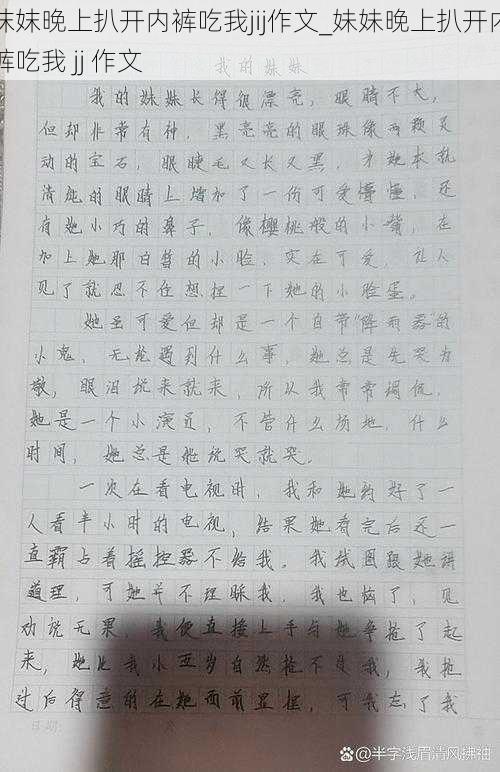 我的妹妹
我的妹妹长得很漂亮，眼睛不大，
但却非常有神，黑亮亮的眼珠像两颗灵
动的宝石，眼睫毛又长又黑，
清
的眼睛上增加了一份可爱懵懂，还
有她小巧的鼻子，像樱桃般的小嘴，在
加上她那白皙的小脸，实在可爱，让人
见了就忍不住想捏一下她的小脸蛋。
她虽可爱但却是一个自带“降雨器”的
小鬼，无论遇到什么事，她总是先哭为
敬，眼泪说来就来，所以我常常调侃，
她是一个小演员，不管什么场地，什么
时间，她总是能说哭就哭。
一次在看电视时，我和她约好了一
人看半小时的电视，结果她看完后还一
直霸占着摇控器不给我。我试图跟她讲
道理，可她并不理睬我，我也恼了，见
劝说无果，我便直接上手与她争抢了起
来，她比我小五岁自然抢不过我，我抢
过后得意的在她面前显摆，可我忘了我
日期：
@半字浅眉清风拂袖